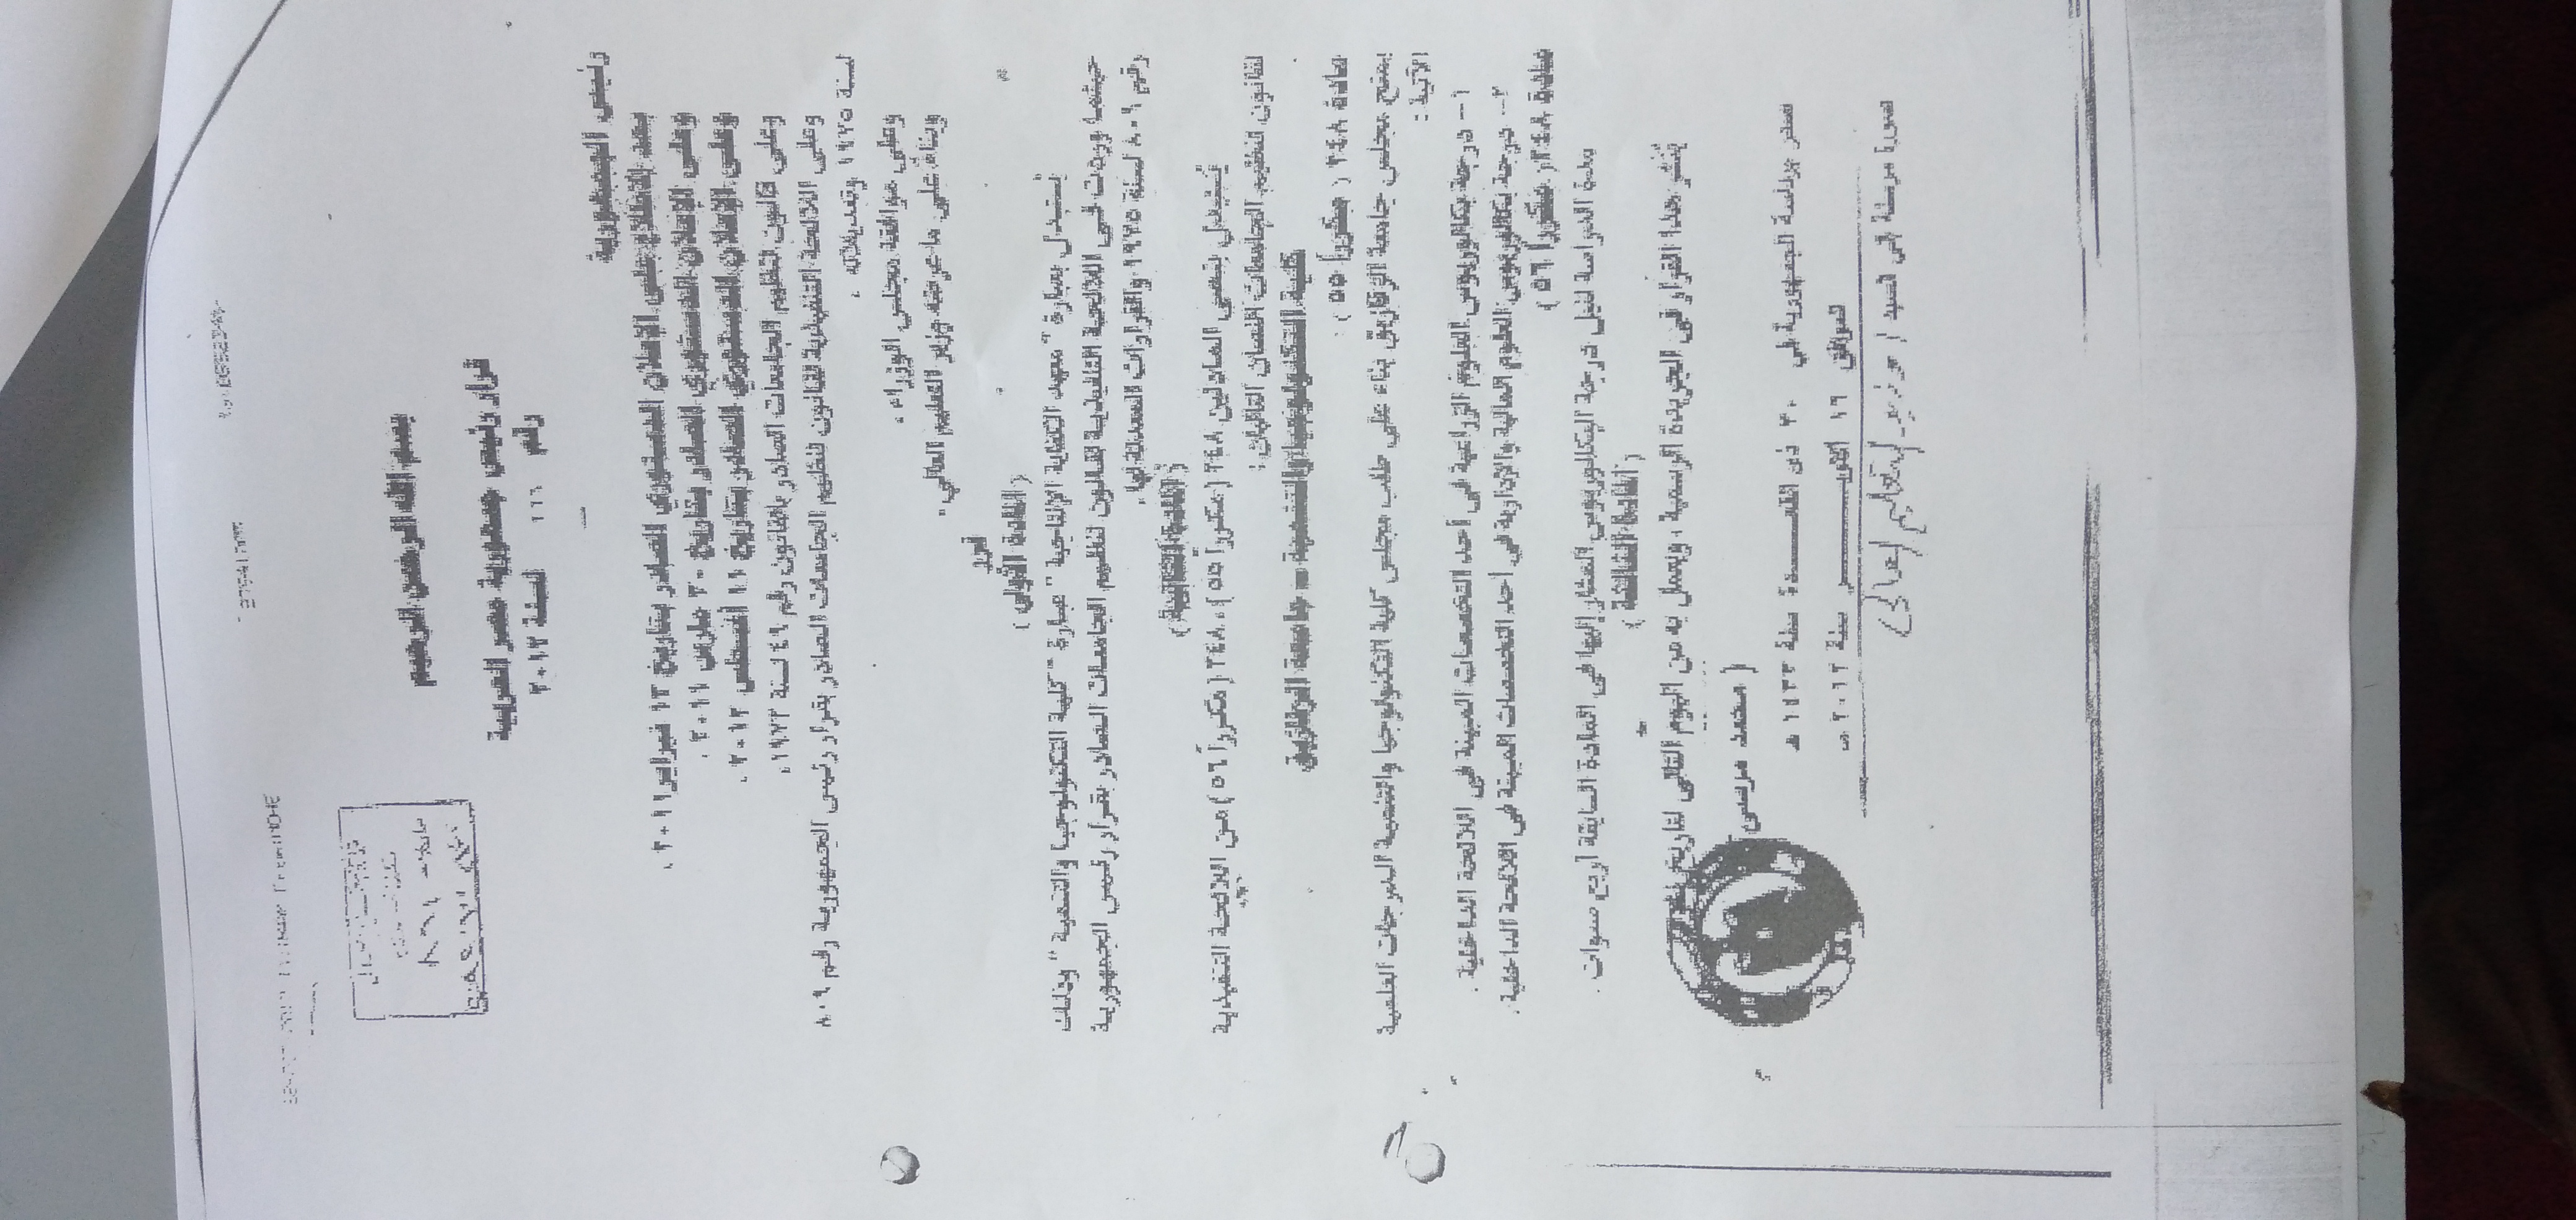 بسم الله الرحمن الرحيم
قرار رئيس جمهورية مصر العربية
رقم ٢٦٦ لسنة ٢٠١٢
رئيس الجمهورية
بعد الاطلاع على الإعلان الدستوري الصادر بتاريخ ١٣ فبراير ٢٠١١ ،
وعلى الإعلان الدستوري الصادر بتاريخ ٣٠ مارس ٢٠١١ ،
وعلى الإعلان الدستوري الصادر بتاريخ ١١ أغسطس ٢٠١٢ ،
وعلى قانون تنظيم الجامعات الصادر بالقانون رقم ٤٩ لسنة ١٩٧٢ ،
وعلى اللائحة التنفيذية لقانون تنظيم الجامعات الصادر بقرار رئيس الجمهورية رقم ٨٠٩
لسنة ١٩٧٥ وتعديلاته ،
وعلى موافقة مجلس الوزراء ،
وبناء على ما عرضه وزير التعليم العالي ،
قرر
( المادة الأولى )
تستبدل بعبارة " معهد الكفاية الإنتاجية " عبارة " كلية التكنولوجيا والتنمية " وذلك
حيثما وردت في اللائحة التنفيذية لقانون تنظيم الجامعات الصادر بقرار رئيس الجمهورية
رقم ٨٠٩ لسنة ١٩٧٥ والقرارات المعدلة لها .
( المادة الثانية )
تستبدل بنص المادتين ٢٤٨ ( مكرراً ٥٥ ) ، ٢٤٨ ( مكرراً ٥٦ ) من اللائحة التنفيذية
لقانون تنظيم الجامعات النصان التاليان :
كلية التكنولوجيا والتنمية – جامعة الزقازيق
مادة ٢٤٨ ( مكرراً ٥٥ )
يمنح مجلس جامعة الزقازيق بناء على طلب مجلس كلية التكنولوجيا والتنمية الدرجات العلمية
الآتية :
١ – درجة بكالوريوس العلوم الزراعية في أحد التخصصات المبينة في اللائحة الداخلية .
٢ – درجة بكالوريوس العلوم المالية والإدارية في أحد التخصصات المبينة في اللائحة الداخلية .
مادة ٢٤٨ ( مكرراً ٥٦ )
مدة الدراسة لنيل درجة البكالوريوس المشار إليها في المادة السابقة أربع سنوات .
( المادة الثالثة )
ينشر هذا القرار في الجريدة الرسمية ، ويعمل به من اليوم التالي لتاريخ
( محمد مرسى )
صدر برئاسة الجمهورية في ٣٠ ذى القعـــدة سنة ١٤٣٣ هـ
الموافق ١٦ أكتوبـــــر سنة ٢٠١٢ م
صورة مرسلة الى السيد / وزير التعليم العالى